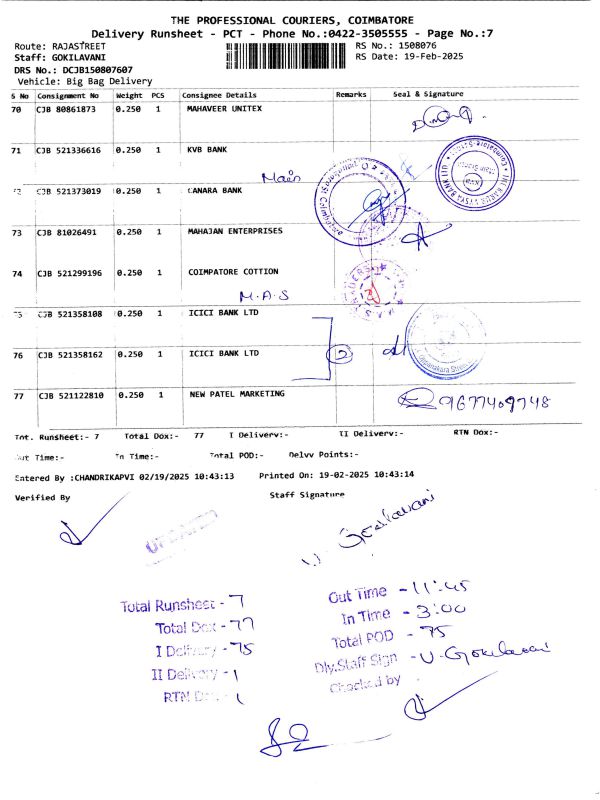 THE PROFESSIONAL COURIERS, COIMBATORE
Delivery Runsheet - PCT - Phone No.:0422-3505555 - Page No.:7
Route: RAJASTREET RS No.: 1508076
Staff: GOKILAVANI RS Date: 19-Feb-2025
DRS No.: DCJB150807607
Vehicle: Big Bag Delivery
S No Consignment No Weight PCS Consignee Details Remarks Seal & Signature
70 CJB 80861873 0.250 1 MAHAVEER UNITEX
71 CJB 521336616 0.250 1 KVB BANK
Main
72 CJB 521373019 0.250 1 CANARA BANK
73 CJB 81026491 0.250 1 MAHAJAN ENTERPRISES
74 CJB 521299196 0.250 1 COIMPATORE COTTION
M.A.S
75 CJB 521358108 0.250 1 ICICI BANK LTD
76 CJB 521358162 0.250 1 ICICI BANK LTD 2
77 CJB 521122810 0.250 1 NEW PATEL MARKETING 9677409748
Tot. Runsheet:- 7 Total Dox:- 77 I Delivery:- II Delivery:- RTN Dox:-
Out Time:- In Time:- Total POD:- Delvv Points:-
Entered By :CHANDRIKAPVI 02/19/2025 10:43:13 Printed On: 19-02-2025 10:43:14
Verified By Staff Signature
UPDATED
U. Gokilavani
Total Runsheet - 7 Out Time - 11:45
Total Dox - 77 In Time - 3:00
I Delivery - 75 Total POD - 75
II Delivery - 1 Dly.Staff Sign - U. Gokilavani
RTN Dox - 1 Checked by